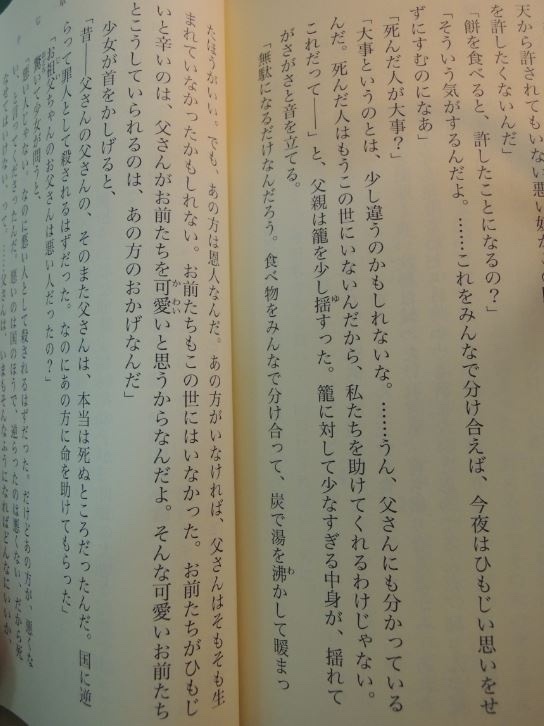 天から許されてもいない悪い
を許したくないんだ」
「餅を食べると、許したことになるの？」
「そういう気がするんだよ。……これをみんなで分け合えば、今夜はひもじい思いをせ
ずにすむのになあ」
「死んだ人が大事？」
「大事というのとは、少し違うのかもしれないな。……うん、父さんにも分かっている
んだ。死んだ人はもうこの世にいないんだから、私たちを助けてくれるわけじゃない。
これだって――」と、父親は籠を少し揺すった。籠に対して少なすぎる中身が、揺れて
がさがさと音を立てる。
「無駄になるだけなんだろう。食べ物をみんなで分け合って、炭で湯を沸かして暖まっ
たほうがいい。でも、あの方は恩人なんだ。あの方がいなければ、父さんはそもそも生
まれていなかったかもしれない。お前たちもこの世にはいなかった。お前たちがひもじ
いと辛いのは、父さんがお前たちを可愛いと思うからなんだよ。そんな可愛いお前たち
とこうしていられるのは、あの方のおかげなんだ」
少女が首をかしげると、
「昔――父さんの父さんの、そのまた父さんは、本当は死ぬところだったんだ。国に逆
らって罪人として殺されるはずだった。なのにあの方に命を助けてもらった」
「お祖父ちゃんのお父さんは悪い人だったの？」
驚いて少女が問うと、
「悪い人じゃない。なのに悪い人として殺されるはずだった。だけどあの方が、悪くな
いと言ってくださったんだ。悪いのは国のほうで、逆らったのは悪くない、だから死
なせてはいけない、って。……父さんは、いまもそんなふうになればどんなにいいか、